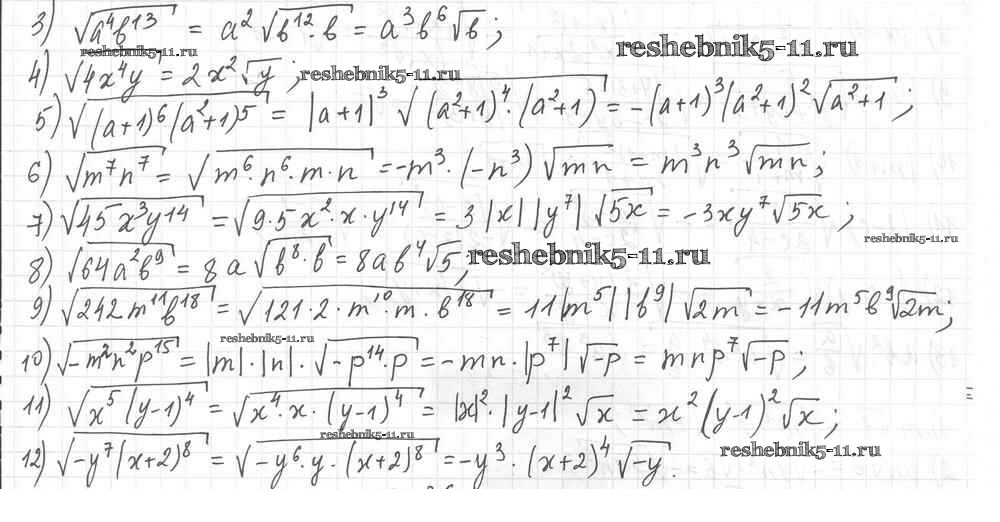 3) √(a⁴b¹³) = a² √(b¹²·b) = a³b⁶√b;
reshebnik5-11.ru
reshebnik5-11.ru
4) √(4x⁴y) = 2x²√y; reshebnik5-11.ru
5) √((a+1)⁶(a²+1)⁵) = |a+1|³ √((a²+1)⁴·(a²+1)) = -(a+1)³(a²+1)²√(a²+1);
6) √(m⁷n⁷) = √(m⁶·n⁶·m·n) = -m³·(-n³) √(mn) = m³n³√(mn);
7) √(45x³y¹⁴) = √(9·5x²·x·y¹⁴) = 3|x||y⁷| √(5x) = -3xy⁷√(5x);
reshebnik5-11.ru
8) √(64a²b⁹) = 8a√(b⁸·b) = 8ab⁴√5; reshebnik5-11.ru
9) √(242m¹¹b¹⁸) = √(121·2·m¹⁰·m·b¹⁸) = 11|m⁵||b⁹| √(2m) = -11m⁵b⁹√(2m);
reshebnik5-11.ru
10) √(-m²n²p¹⁵) = |m|·|n|·√(-p¹⁴·p) = -mn·|p⁷|√(-p) = mnp⁷√(-p);
11) √(x⁵(y-1)⁴) = √(x⁴·x·(y-1)⁴) = |x|²·|y-1|²√x = x²(y-1)²√x;
reshebnik5-11.ru
12) √(-y⁷(x+2)⁸) = √(-y⁶·y·(x+2)⁸) = -y³·(x+2)⁴√(-y).
reshebnik5-11.ru